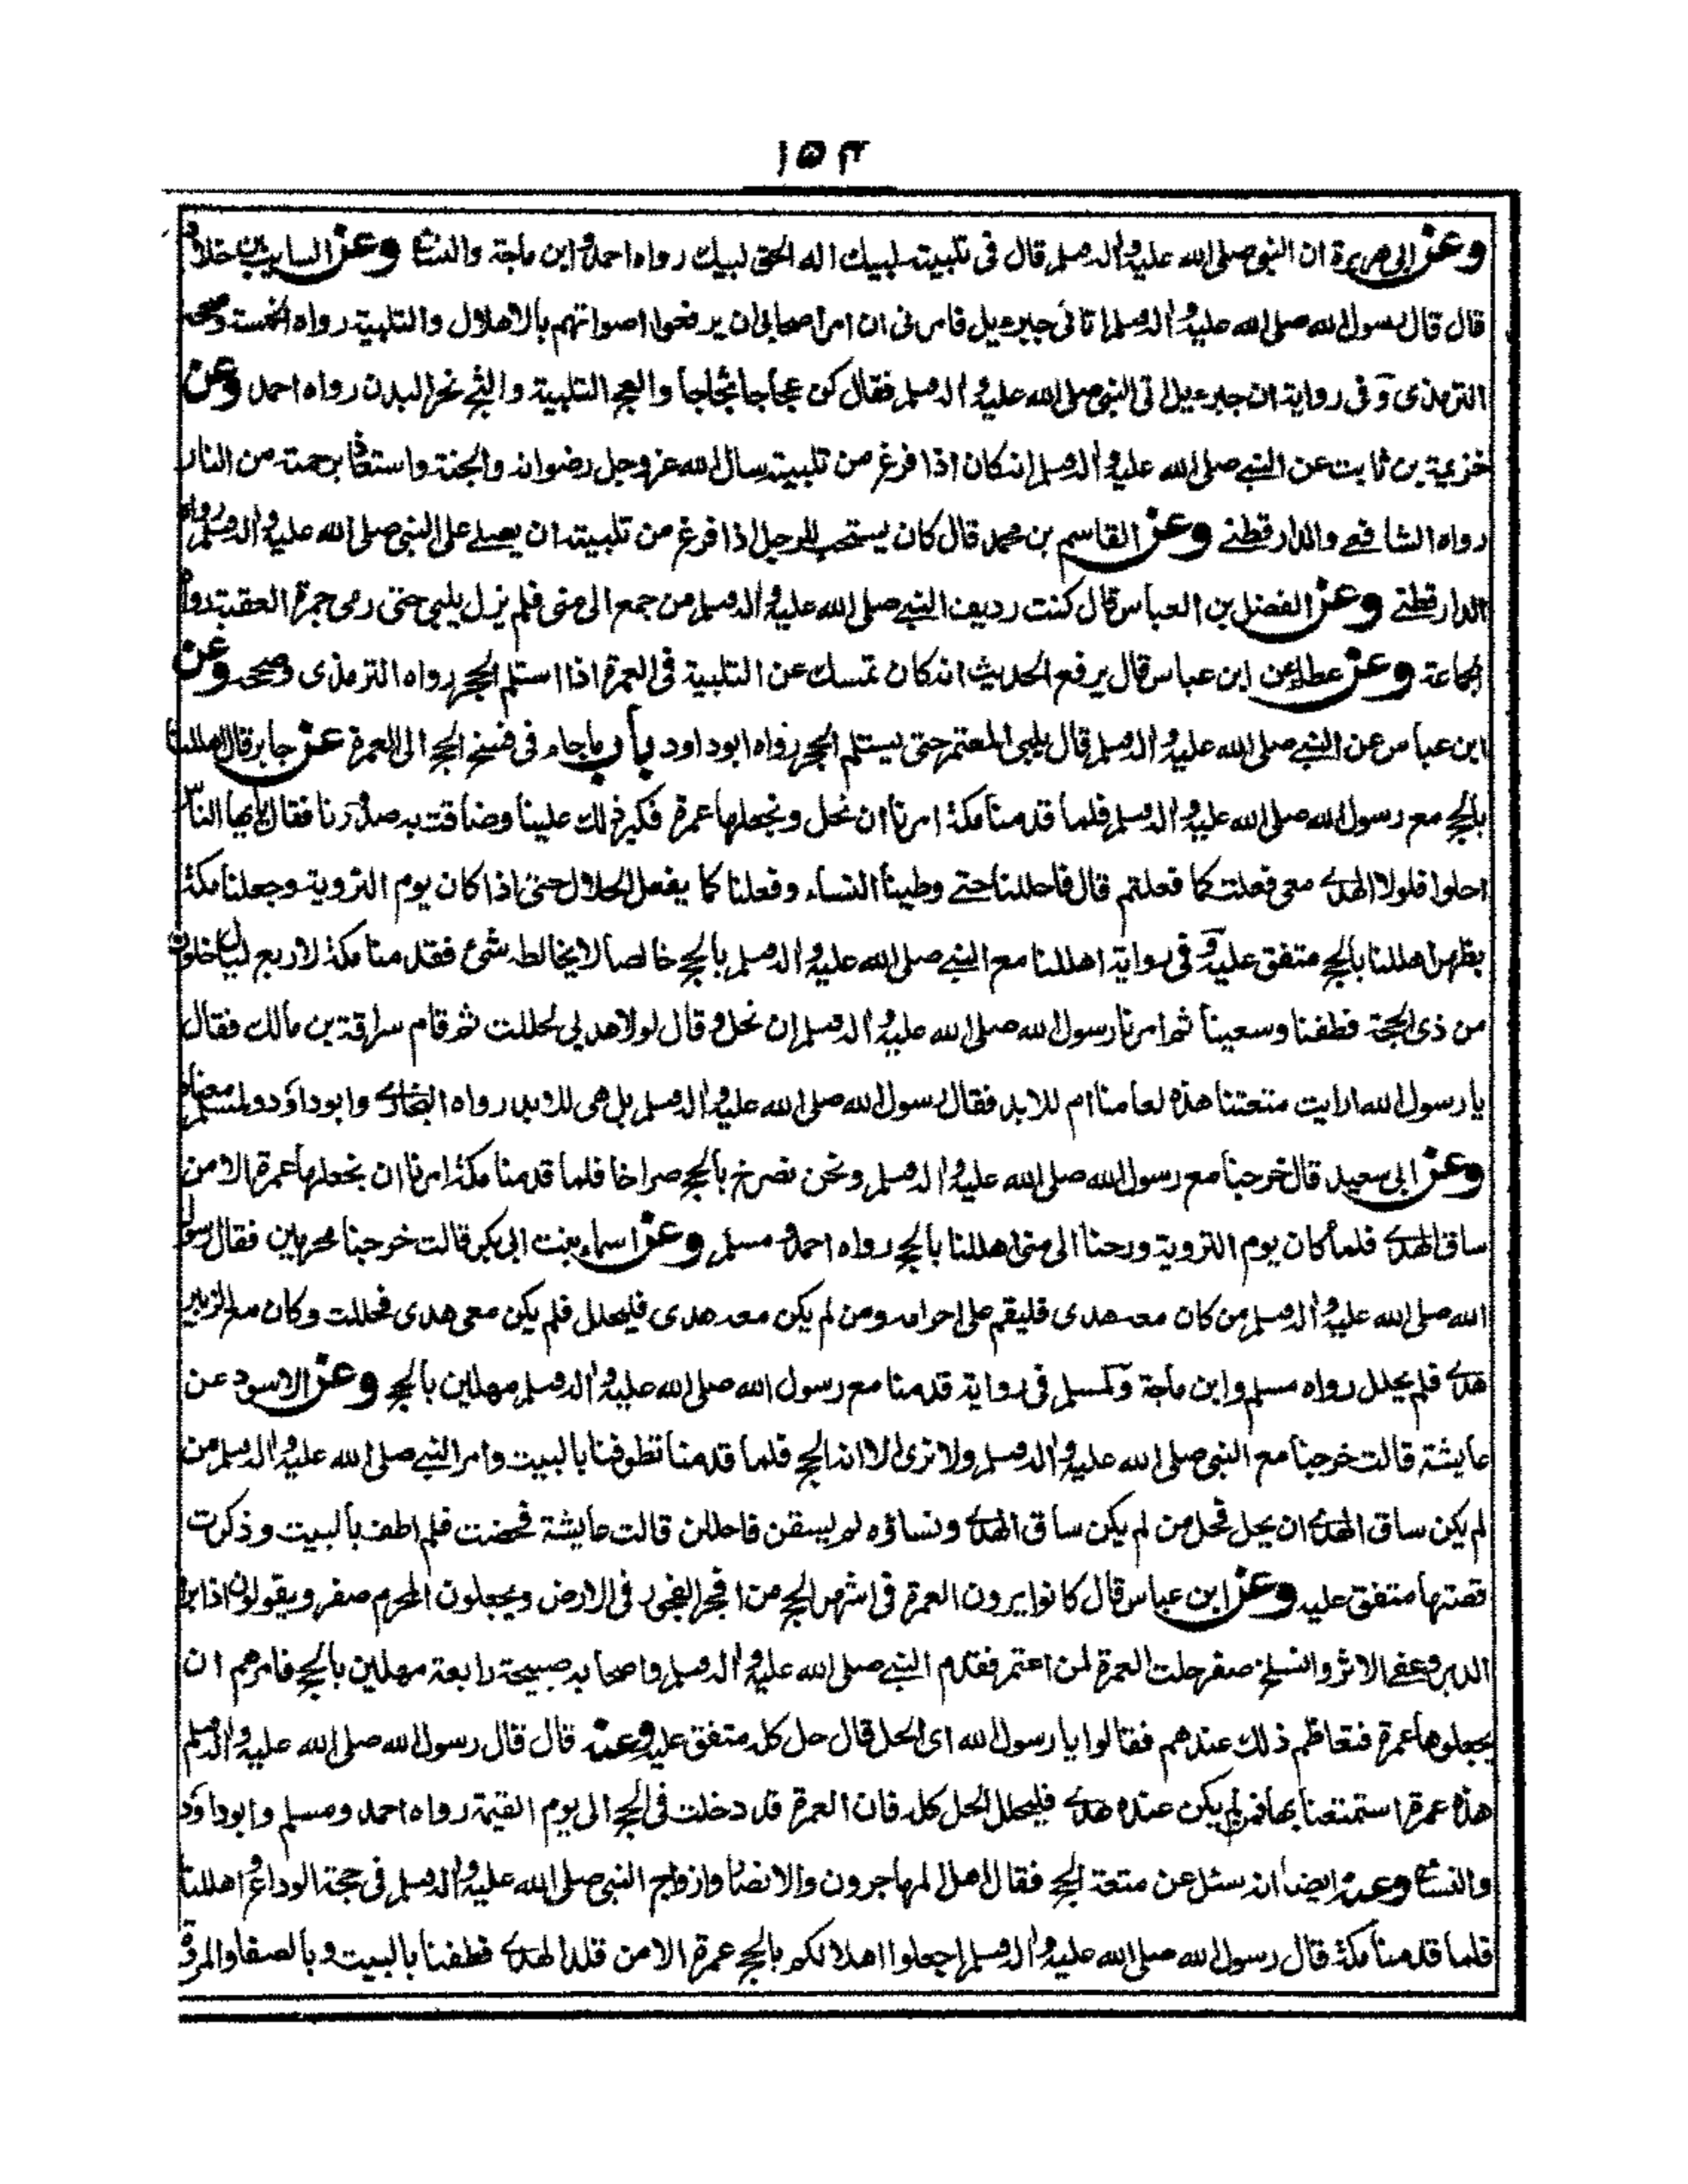 ١٥٣
وعن ابى هريرة ان النبى صلى الله عليه واله وسلم قال فى تلبيته لبيك اله الحق لبيك رواه احمد وابن ماجة والنسائى وعن السايب بن خلاد
قال قال رسول الله صلى الله عليه واله وسلم اتانى جبرءيل فامرنى ان امر اصحابى ان يرفعوا اصواتهم بالاهلال والتلبية رواه الخمسة وصححه
الترمذى وفى رواية ان جبرءيل اتى النبى صلى الله عليه واله وسلم فقال كن عجاجا ثجاجا والعج التلبية والثج نحر البدن رواه احمد وعن
خزيمة بن ثابت عن النبى صلى الله عليه واله وسلم انه كان اذا فرغ من تلبيته سال الله عز وجل رضوانه والجنة واستعاذ برحمته من النار
رواه الشافعى والدارقطنى وعن القاسم بن محمد قال كان يستحب للرجل اذا فرغ من تلبيته ان يصلى على النبى صلى الله عليه واله وسلم رواه
الدارقطنى وعن الفضل بن العباس قال كنت رديف النبى صلى الله عليه واله وسلم من جمع الى منى فلم يزل يلبى حتى رمى جمرة العقبة رواه
الجماعة وعن عطاء عن ابن عباس قال يرفع الحديث انه كان يمسك عن التلبية فى العمرة اذا استلم الحجر رواه الترمذى وصححه وعن
ابن عباس عن النبى صلى الله عليه واله وسلم قال يلبى المعتمر حتى يستلم الحجر رواه ابوداود باب ماجاء فى فسخ الحج الى العمرة عن جابر قال اهللنا
بالحج مع رسول الله صلى الله عليه واله وسلم فلما قدمنا مكة امرنا ان نحل ونجعلها عمرة فكبر ذلك علينا وضاقت به صدورنا فقال يا ايها الناس
احلوا فلولا الهدى معى فعلت كما فعلتم قال فاحللنا حتى وطينا النساء وفعلنا كما يفعل الحلال حتى اذا كان يوم التروية وجعلنا مكة
بظهر اهللنا بالحج متفق عليه وفى رواية اهللنا مع النبى صلى الله عليه واله وسلم بالحج خالصا لا يخالطه شئ فقدمنا مكة لاربع ليال خلون
من ذى الحجة فطفنا وسعينا ثم امرنا رسول الله صلى الله عليه واله وسلم ان نحل وقال لولا هديى لحللت ثم قام سراقة بن مالك فقال
يا رسول الله ارايت متعتنا هذه لعامنا ام للابد فقال رسول الله صلى الله عليه واله وسلم بل هى للابد رواه البخارى وابوداؤد ولمسلم معناه
وعن ابى سعيد قال خرجنا مع رسول الله صلى الله عليه واله وسلم ونحن نصرخ بالحج صراخا فلما قدمنا مكة امرنا ان نجعلها عمرة الا من
ساق الهدى فلما كان يوم التروية ورحنا الى منى اهللنا بالحج رواه احمد ومسلم وعن اسماء بنت ابى بكر قالت خرجنا محرمين فقال رسول
الله صلى الله عليه واله وسلم من كان معه هدى فليقم على احرامه ومن لم يكن معه هدى فليحلل فلم يكن معى هدى فحللت وكان مع الزبير
هدى فلم يحلل رواه مسلم وابن ماجة ولمسلم فى رواية قدمنا مع رسول الله صلى الله عليه واله وسلم مهلين بالحج وعن الاسود عن
عايشة قالت خرجنا مع النبى صلى الله عليه واله وسلم ولا نرى الا انه الحج فلما قدمنا تطوفنا بالبيت وامر النبى صلى الله عليه واله وسلم من
لم يكن ساق الهدى ان يحل فحل من لم يكن ساق الهدى ونساؤه لم يسقن فاحللن قالت عايشة فحضت فلم اطف بالبيت وذكرت
قصتها متفق عليه وعن ابن عباس قال كانوا يرون العمرة فى اشهر الحج من افجر الفجور فى الارض ويجعلون المحرم صفر ويقولون اذا برا
الدبر وعفى الاثر وانسلخ صفر حلت العمرة لمن اعتمر فقدم النبى صلى الله عليه واله وسلم واصحابه صبيحة رابعة مهلين بالحج فامرهم ان
يجعلوها عمرة فتعاظم ذلك عندهم فقالوا يا رسول الله اى الحل قال حل كله متفق عليه وعنه قال قال رسول الله صلى الله عليه واله وسلم
هذه عمرة استمتعنا بها فمن لم يكن عنده هدى فليحلل الحل كله فان العمرة قد دخلت فى الحج الى يوم القيمة رواه احمد ومسلم وابوداؤد
والنسائى وعنه ايضا انه سئل عن متعة الحج فقال اهل المهاجرون والانصار وازواج النبى صلى الله عليه واله وسلم فى حجة الوداع واهللنا
فلما قدمنا مكة قال رسول الله صلى الله عليه واله وسلم اجعلوا اهلالكم بالحج عمرة الا من قلد الهدى فطفنا بالبيت وبالصفا والمروة